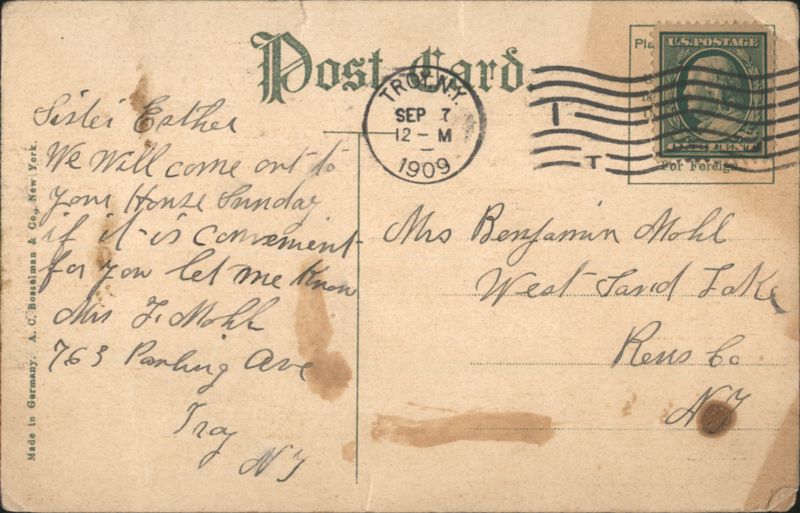 Post Card.
TROY, N.Y.
SEP 7
12 - M
1909
U.S. POSTAGE
For Foreign
Sister Esther
We Will come out to
your House Sunday
if it is convenient
for you let me Know
Mrs F. Mohl
763 Ave
Troy
N Y
Mrs Benjamin Mohl
West Sand Lake
Rens Co
N Y
Made in Germany. A. C. Bosselman & Co., New York.